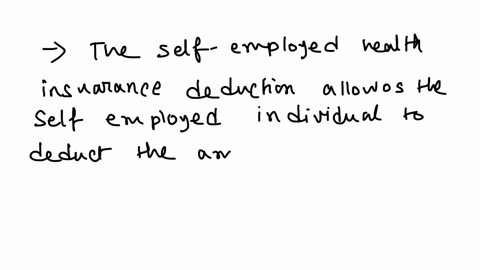 → The self-employed health
insurance deduction allowos the
Self employed individual to
deduct the am